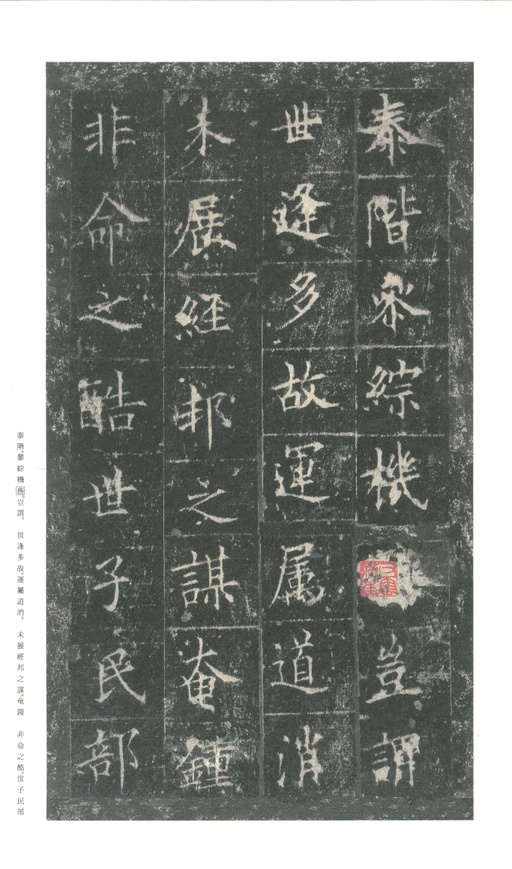 泰階叅綜機豈謂
世逢多故運属道消
未展經邦之謀奄鍾
非命之酷世子民部
泰階。參綜機 。豈謂。 世逢多故。運屬道消。 未展經邦之謀。奄鍾 非命之酷。世子民部